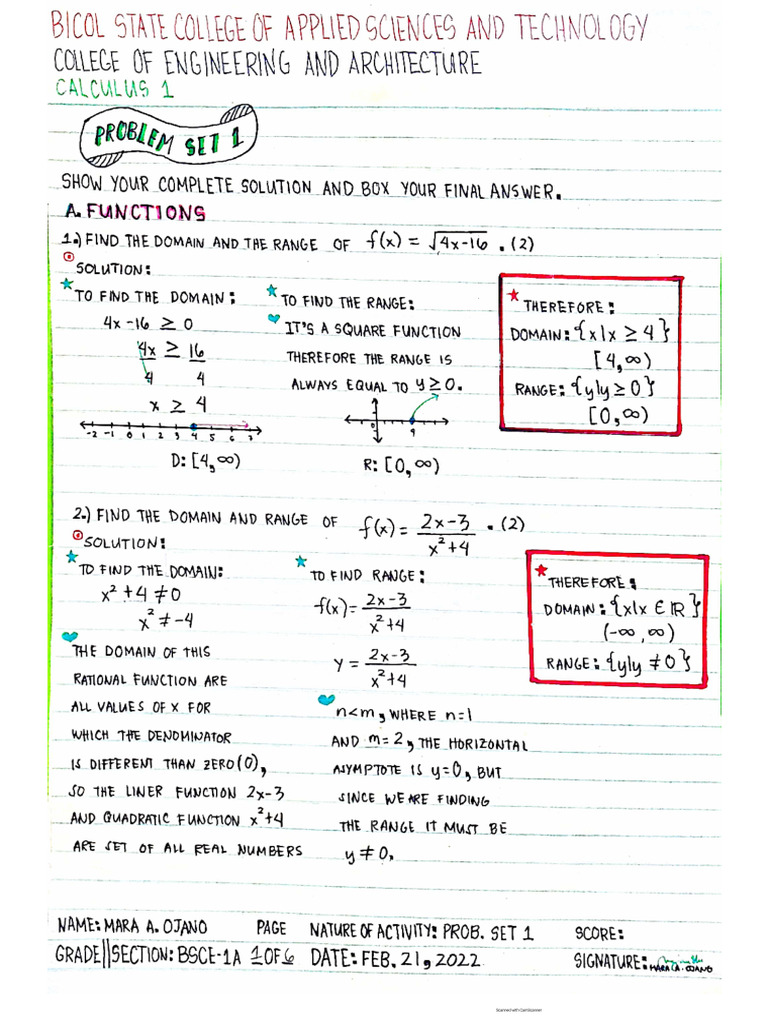 BICOL STATE COLLEGE OF APPLIED SCIENCES AND TECHNOLOGY
COLLEGE OF ENGINEERING AND ARCHITECTURE
CALCULUS 1
PROBLEM SET 1
SHOW YOUR COMPLETE SOLUTION AND BOX YOUR FINAL ANSWER.
A. FUNCTIONS
1.) FIND THE DOMAIN AND THE RANGE OF f(x) = √4x-16 . (2)
SOLUTION:
TO FIND THE DOMAIN:
4x -16 ≥ 0
4x ≥ 16
4 4
x ≥ 4
-2 -1 0 1 2 3 4 5 6 7
D: [4,∞)
TO FIND THE RANGE:
IT'S A SQUARE FUNCTION
THEREFORE THE RANGE IS
ALWAYS EQUAL TO y ≥ 0.
0
R: [0,∞)
THEREFORE:
DOMAIN: {x|x ≥ 4}
[4,∞)
RANGE: {y|y ≥ 0}
[0,∞)
2.) FIND THE DOMAIN AND RANGE OF f(x) = 2x-3 / x²+4 . (2)
SOLUTION:
TO FIND THE DOMAIN:
x² +4 ≠ 0
x² ≠ -4
THE DOMAIN OF THIS
RATIONAL FUNCTION ARE
ALL VALUES OF X FOR
WHICH THE DENOMINATOR
IS DIFFERENT THAN ZERO(0),
SO THE LINER FUNCTION 2x-3
AND QUADRATIC FUNCTION x²+4
ARE SET OF ALL REAL NUMBERS
TO FIND RANGE:
f(x) = 2x-3 / x²+4
y = 2x-3 / x²+4
n<m, WHERE n=1
AND m=2, THE HORIZONTAL
ASYMPTOTE IS y=0, BUT
SINCE WE ARE FINDING
THE RANGE IT MUST BE
y ≠ 0.
THEREFORE:
DOMAIN: {x|x ∈ ℝ}
(-∞,∞)
RANGE: {y|y ≠ 0}
NAME: MARA A. OJANO PAGE NATURE OF ACTIVITY: PROB. SET 1 SCORE:
GRADE||SECTION: BSCE-1A 1 OF 6 DATE: FEB. 21, 2022 SIGNATURE: MARA A. OJANO
Scanned with CamScanner